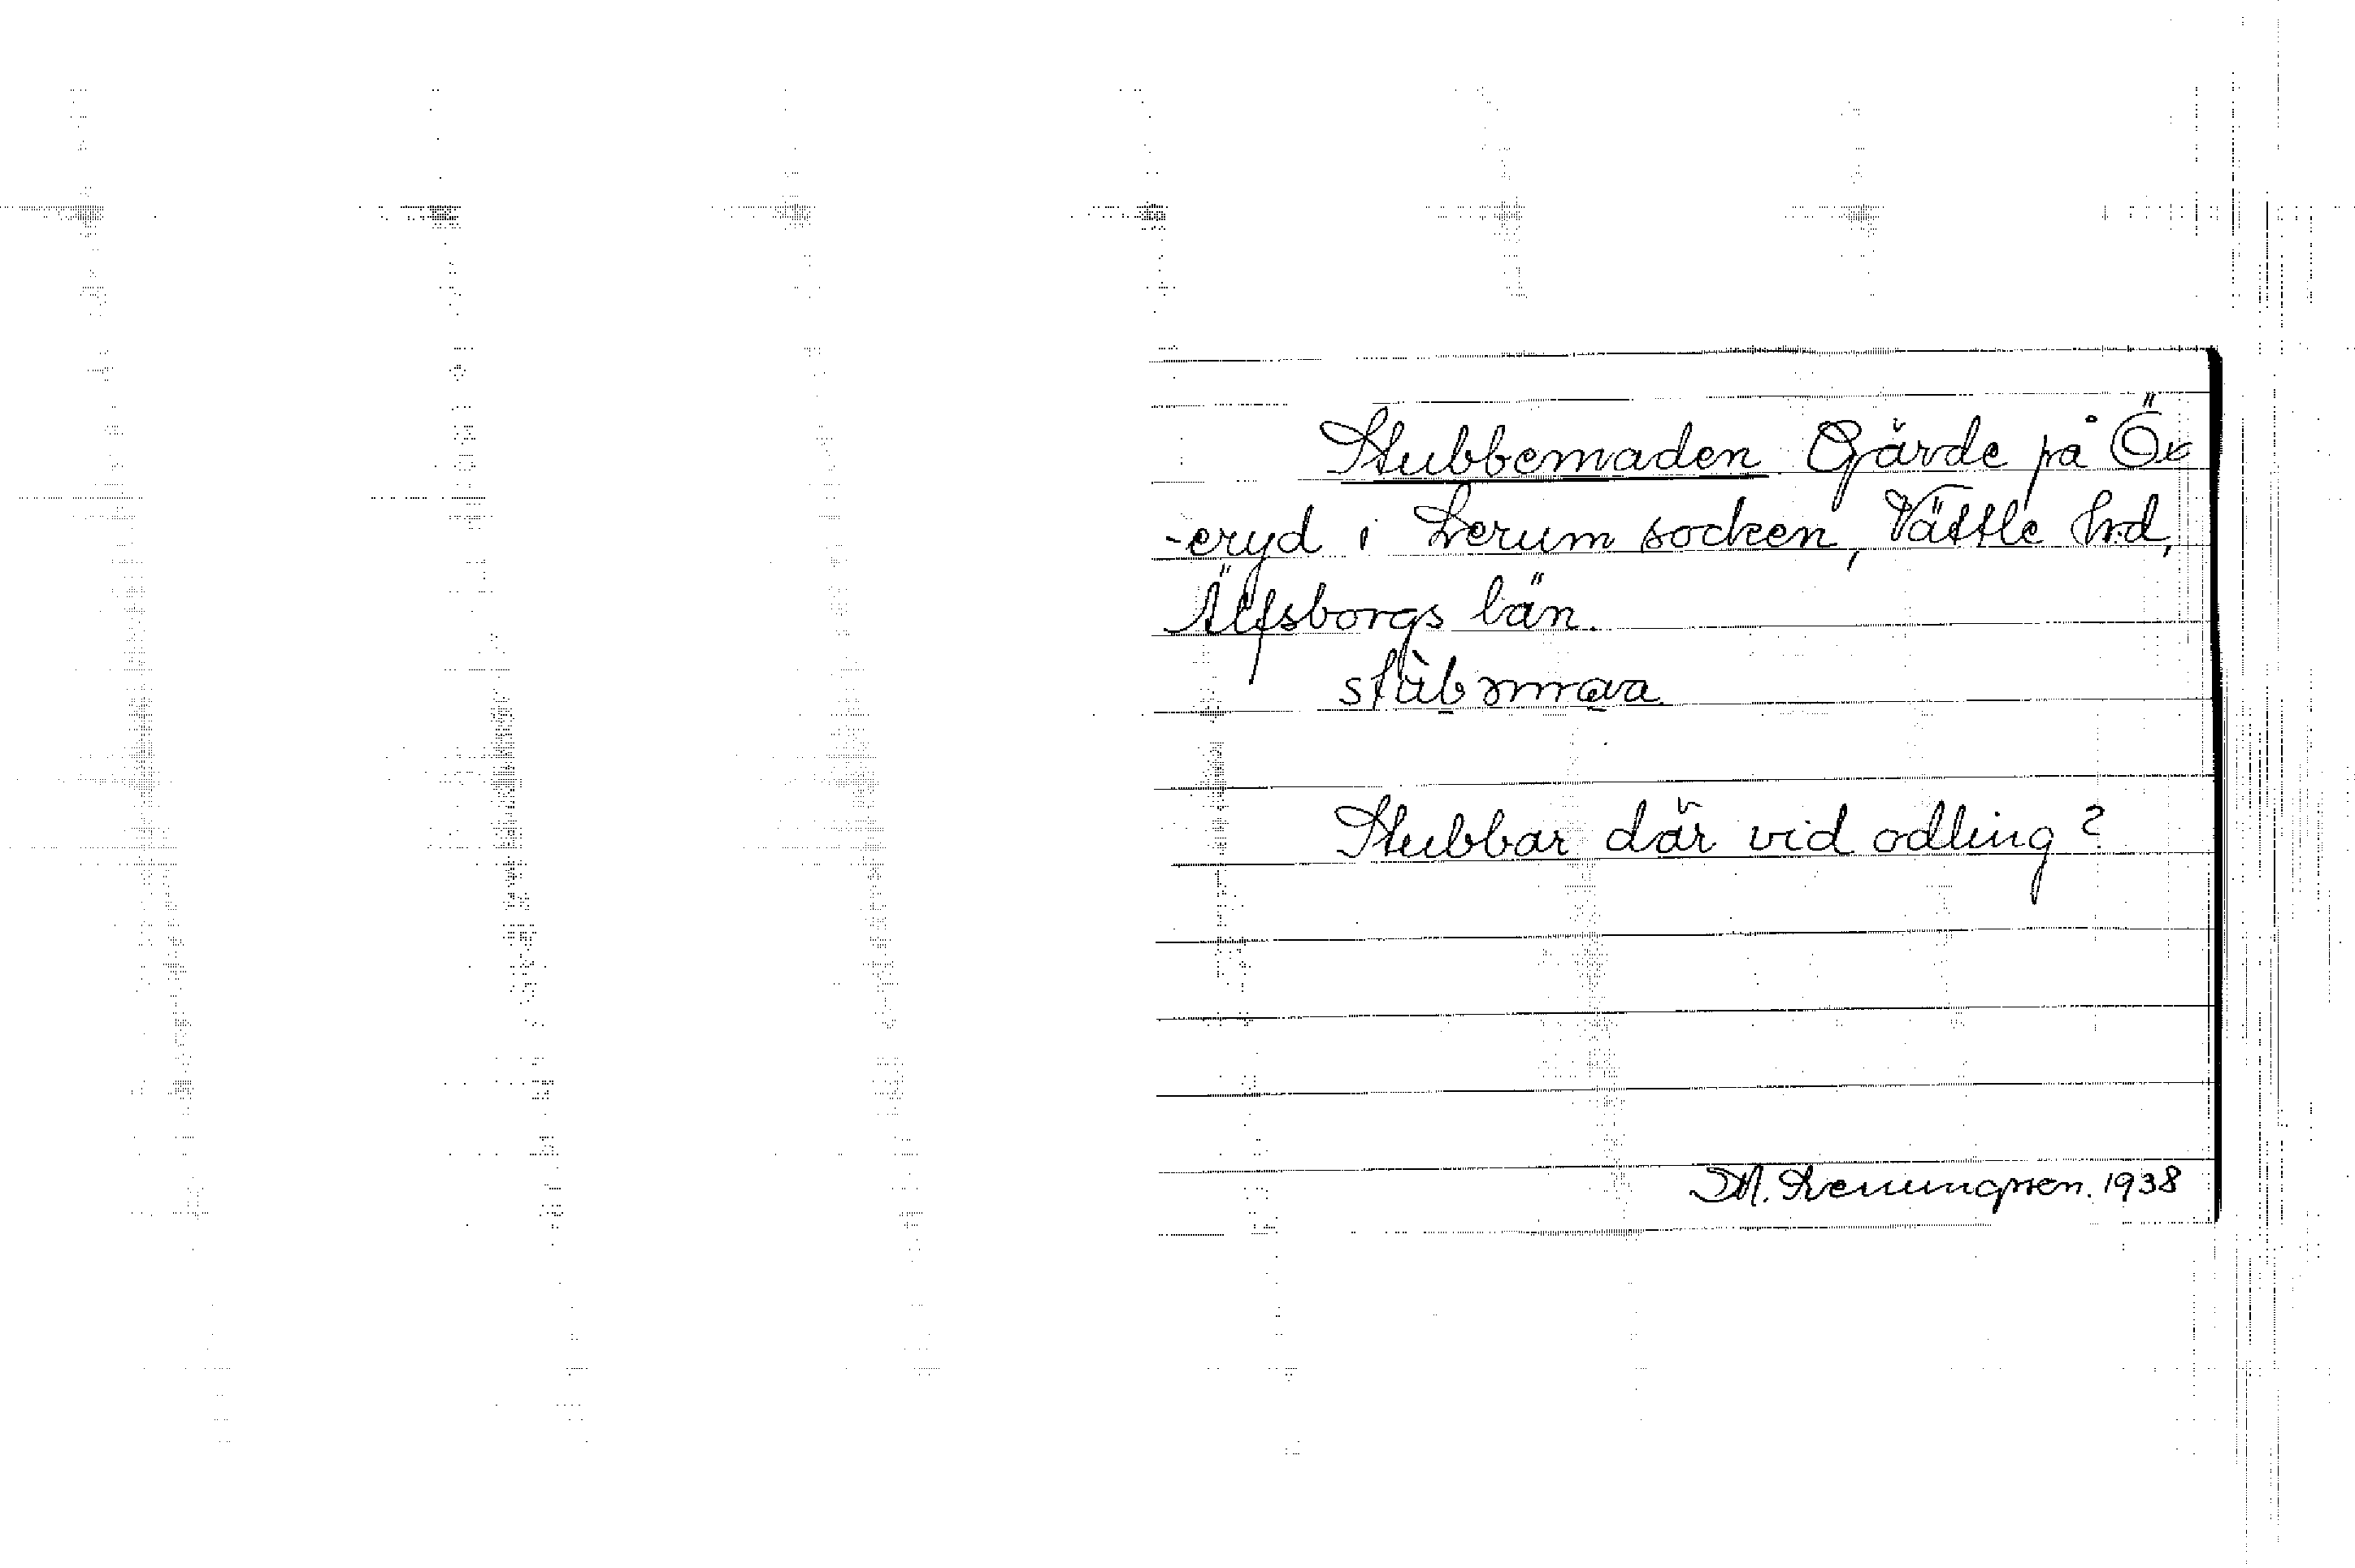 Stubbemaden Gärde på Öx
-eryd i Lerum socken, Vättle hrd,
Älfsborgs län.
stùbəmava.
Stubbar där vid odling?
M. 1938